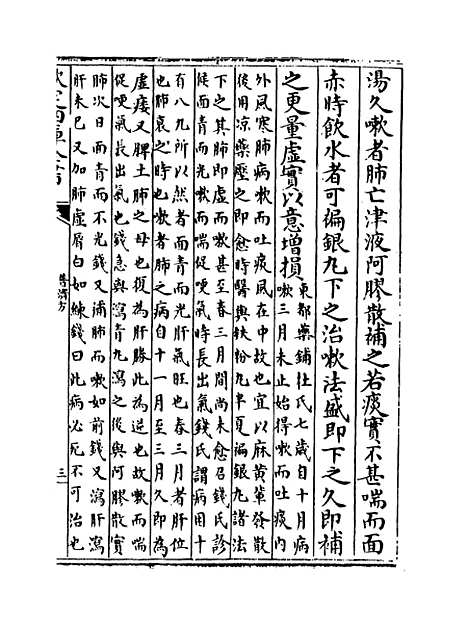 湯久嗽者肺亡津液阿膠散補之若痰實不甚喘而面
赤時飲水者可偏銀九下之治嗽法盛即下之久即補
之更量虛實以意增損
東都藥鋪杜氏七歲自十月病
嗽三月未止始得嗽而吐痰內
外風寒肺病嗽而吐痰風在中故也宜以麻黃輩發散
後用涼藥壓之即愈時醫與鐵粉九半夏偏銀九諸法
下之其肺即虛而嗽甚至春三月間尚未愈召錢氏診
候面青而光嗽而喘促哽氣時長出氣錢氏謂病困十
有八九所以然者面青而光肝氣旺也春三月者肝位
也肺衰之時也嗽者肺之病自十一月至三月久即為
虛痿又脾土肺之母也復為肝勝此為逆也故嗽而喘
促哽氣長出氣也錢急與瀉青九瀉之後與阿膠散實
肺次日面青而不光錢又補肺而嗽如前錢又瀉肝瀉
肝未已又加肺虛唇白如練錢曰此病必死不可治也
欽定四庫全書
普濟方